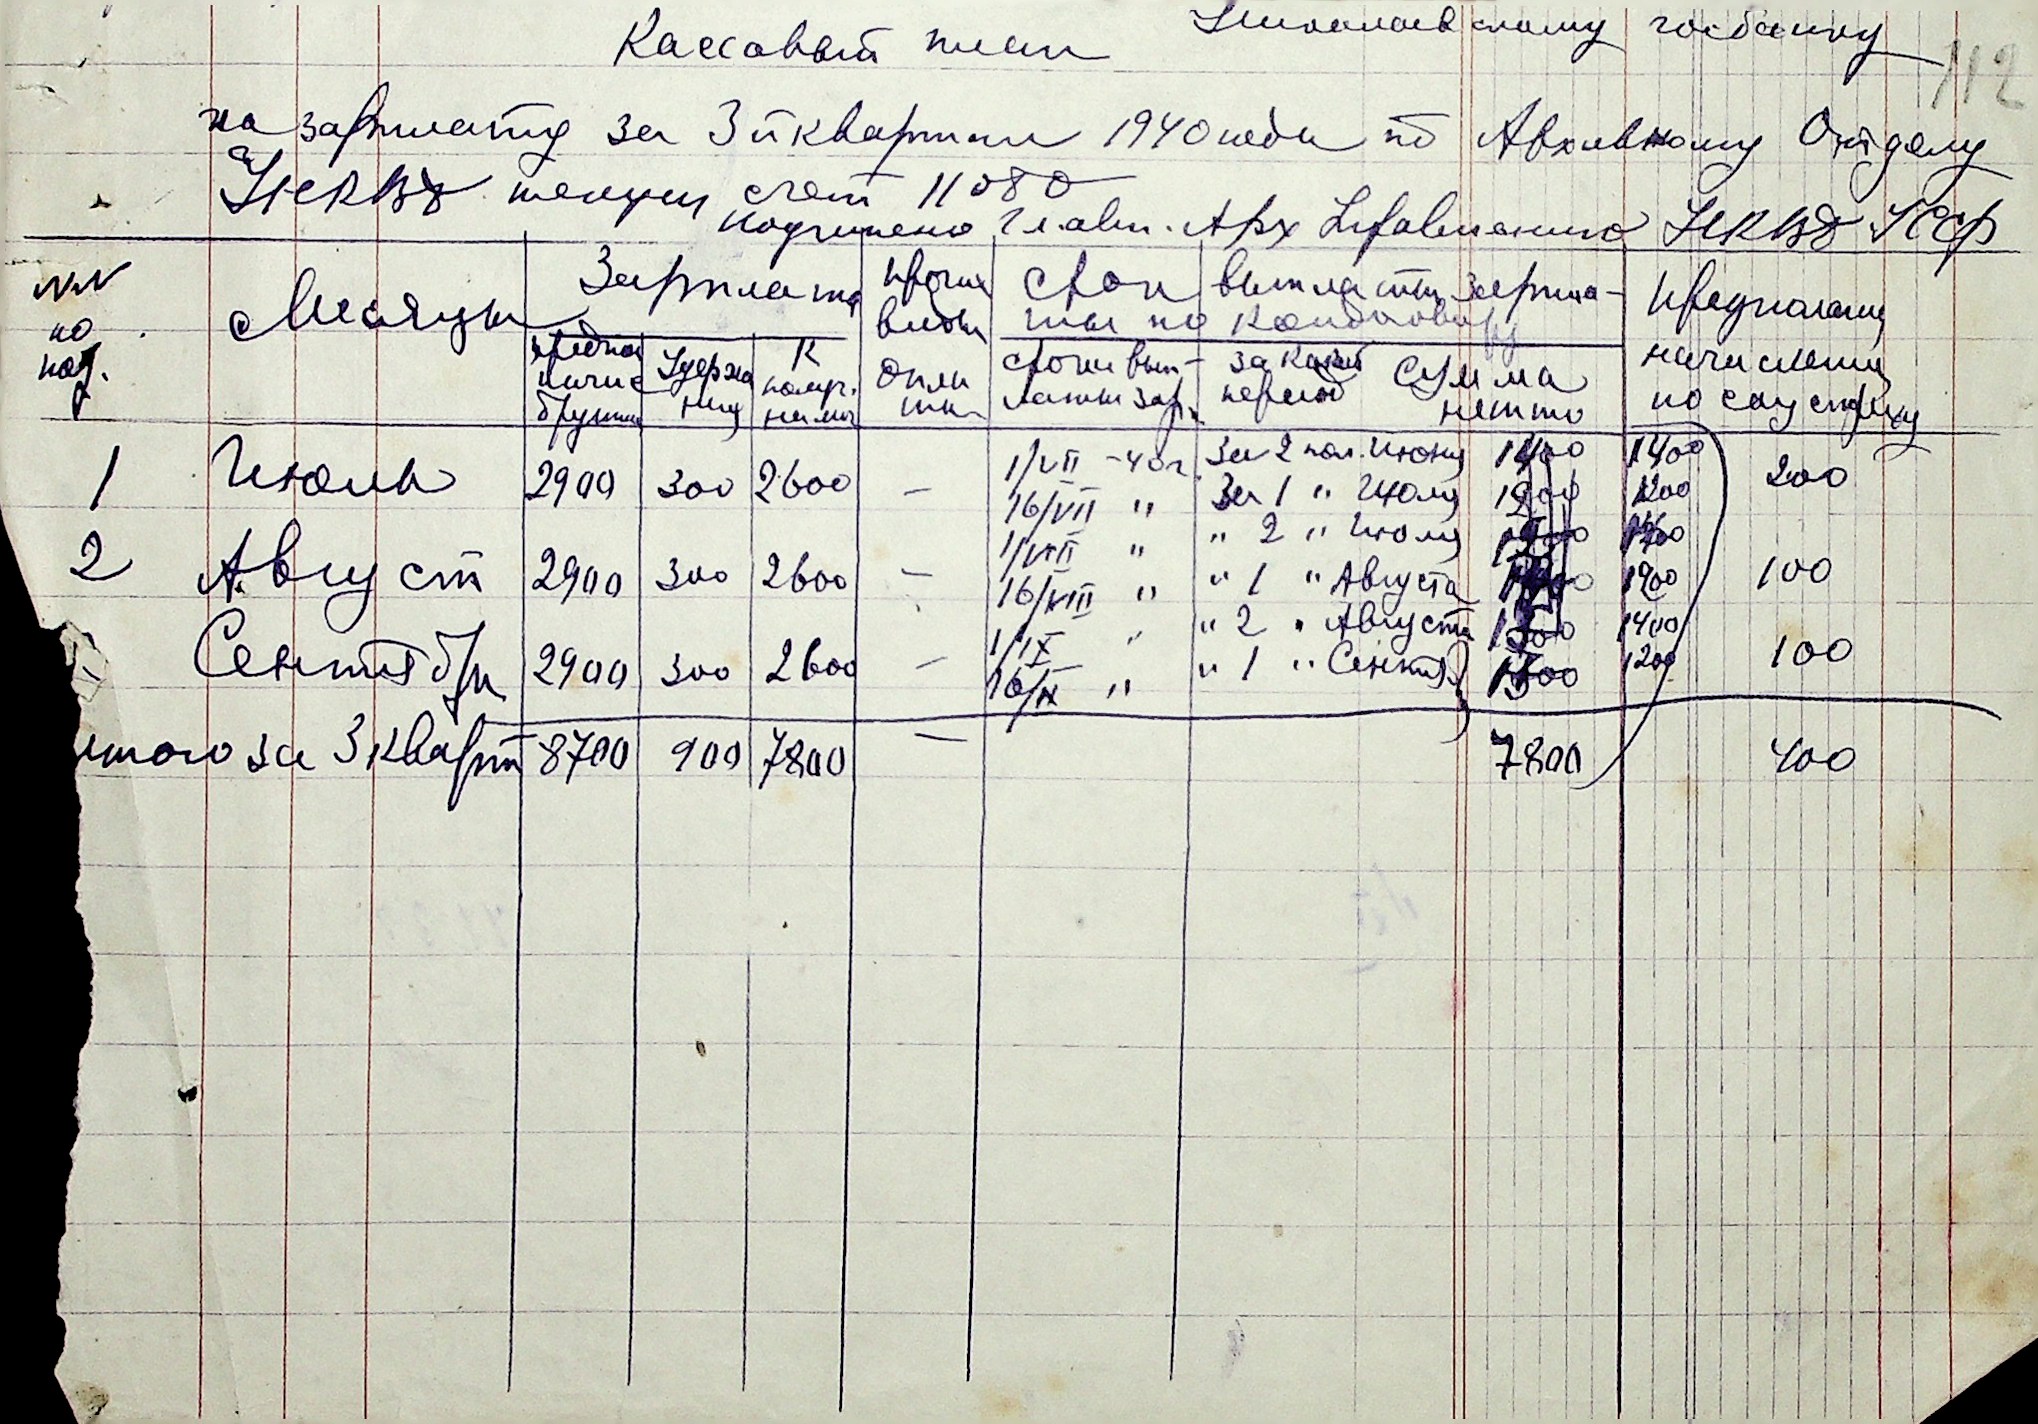 Николаевскому госбанку
Кассовый план
112
на зарплату за 3й квартал 1940 года по Архивному Отделу
УНКВД текущ счет 11080
подчинено Главн. Арх Управлению НКВД УССР
№№ по пор.
Месяцы
Зарплата
Прочие виды оплаты
Срок выплаты зарплаты по колдоговору
начислен по соцстраху
брутто
Удержания
К получ.
Сроки выплаты зар.
за какой период
Сумма нетто
1 Июль 2900 300 2600 — 1/VII -40 г. За 2 пол. Июня 1400 1400 200
16/VII " За 1 " Июля 1200 1200
2 Август 2900 300 2600 — 1/VIII " " 2 " Июля 1400 100
16/VIII " " 1 " Августа 1200
Сентябрь 2900 300 2600 — 1/IX " " 2 " Августа 1400 100
16/IX " " 1 " Сентяб 1200
итого за 3 кварт 8700 900 7800 — 7800 400